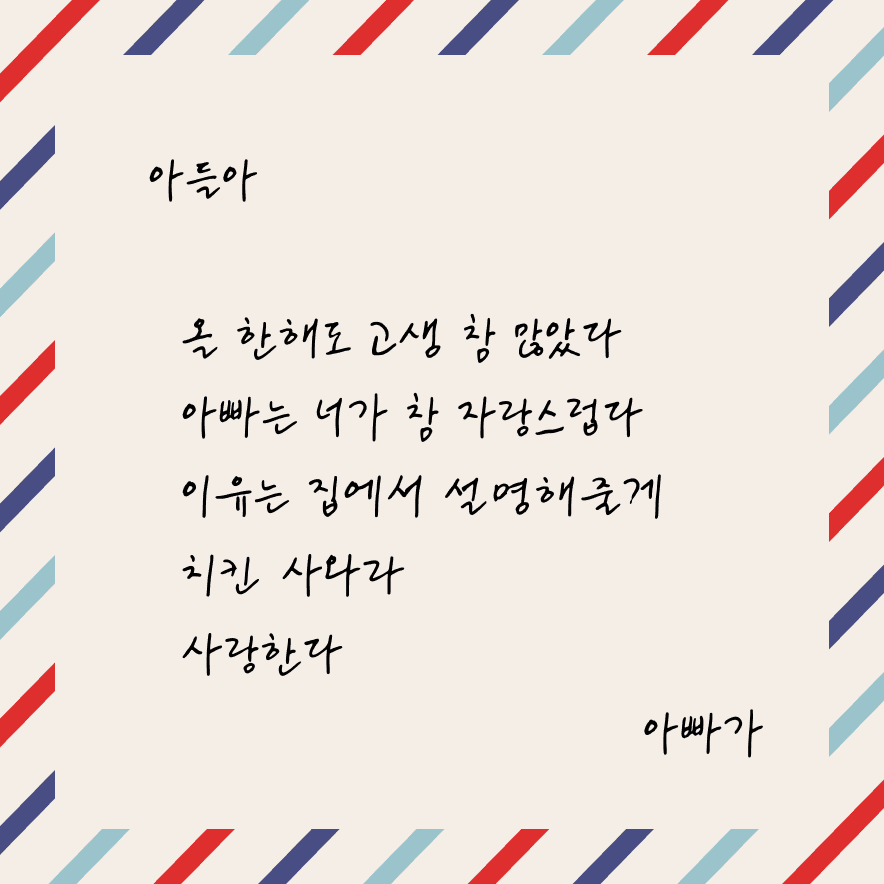 아들아
올 한해도 고생 참 많았다
아빠는 너가 참 자랑스럽다
이유는 집에서 설명해줄게
치킨 사와라
사랑한다
아빠가